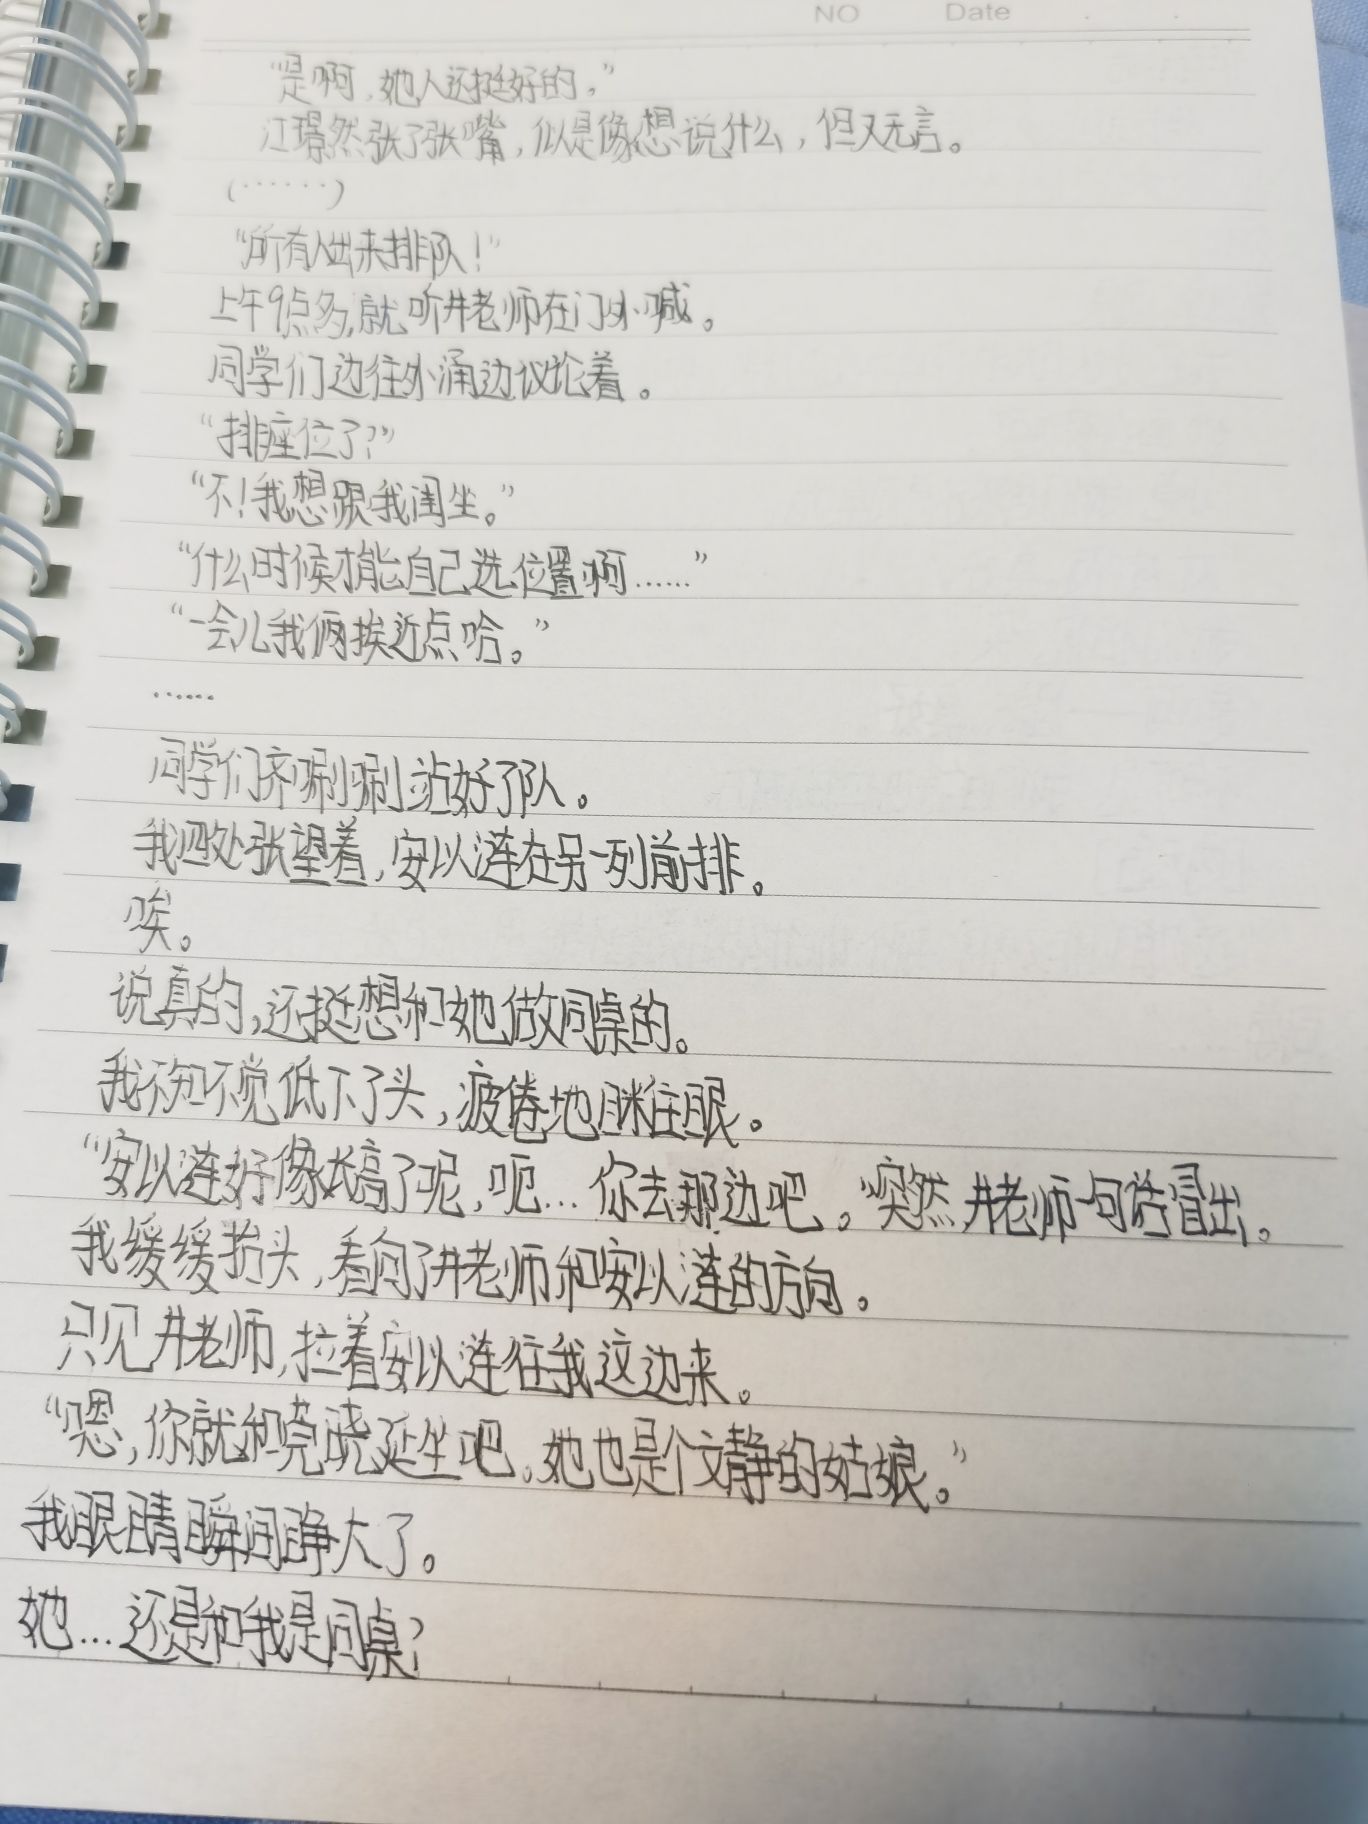 NO Date
“是啊，她人还挺好的。”
江璟然张了张嘴，似是像想说什么，但又无言。
（……）
“所有人出来排队！”
上午9点多，就听井老师在门外喊。
同学们边往外涌边议论着。
“排座位了？”
“不！我想跟我闺坐。”
“什么时候才能自己选位置啊……”
“一会儿我俩挨近点哈。”
……
同学们齐唰唰站好了队。
我四处张望着，安以涟在另一列前排。
唉。
说真的，还挺想和她做同桌的。
我不知不觉低下了头，疲倦地眯住眼。
“安以涟好像长高了呢，呃…你去那边吧。”突然井老师一句话冒出。
我缓缓抬头，看向了井老师和安以涟的方向。
只见井老师，拉着安以涟往我这边来。
“嗯，你就和莞晓延坐吧。她也是个文静的姑娘。”
我眼睛瞬间睁大了。
她…还是和我是同桌？